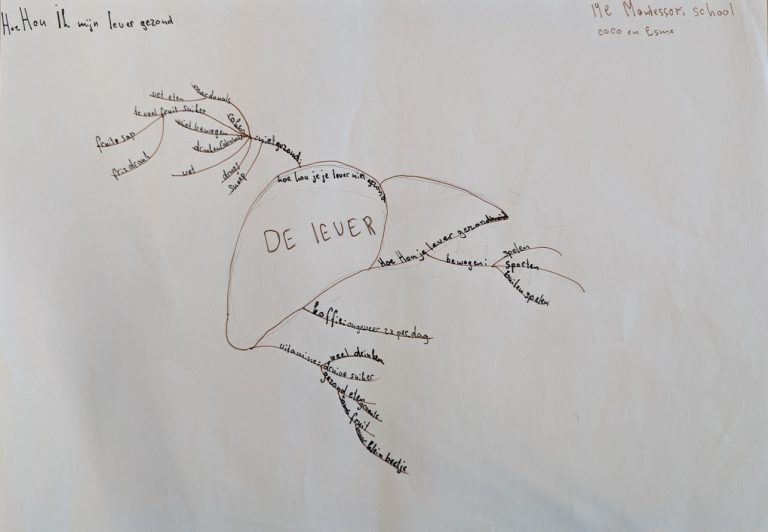 Hoe Hou ik mijn lever gezond
19e Montessori school
coco en Esme
macdonals
vet eten
te veel fruit suiker
fruite sap
frisdrank
niet bewegen
vet
drugs
snoep
niet gezond
hoe hou je je lever niet gezond
DE lEVER
Hoe Hou je je lever gezond
bewegen:
spelen
sporten
buiten spelen
koffie: ongeveer 2x per dag
vitamine:
veel drinken
druive suiker
gezond eten
groente
fruit
klein beetje